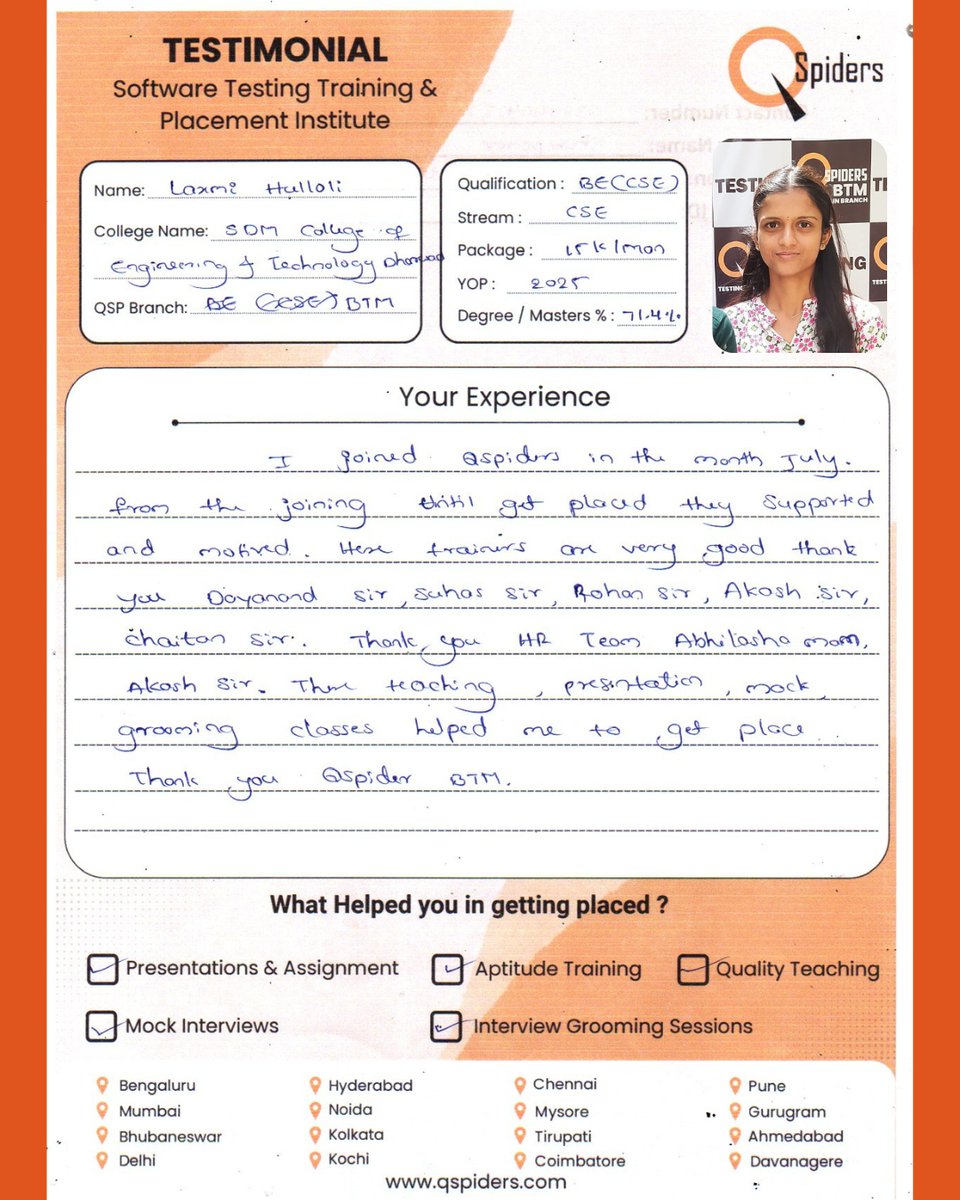 TESTIMONIAL
Software Testing Training &
Placement Institute
Q Spiders
Name: Laxmi Hulloli
College Name: SDM College of
Engineering & Technology Dharwad
QSP Branch: BE (CSE) BTM
Qualification : BE(CSE)
Stream : CSE
Package : 15K/mon
YOP : 2025
Degree / Masters % : 71.4%
SPIDERS
BTM
Your Experience
I joined Qspiders in the month July.
from the joining until get placed they supported
and motived. Here trainers are very good thank
you Dayanand sir, Suhas sir, Rohan sir, Akash sir,
Chaitan sir. Thank you HR Team Abhilasha mam,
Akash sir. There teaching, presintation, mock,
grooming classes helped me to get place.
Thank you Qspider BTM.
What Helped you in getting placed ?
Presentations & Assignment
Aptitude Training
Quality Teaching
Mock Interviews
Interview Grooming Sessions
Bengaluru Hyderabad Chennai Pune
Mumbai Noida Mysore Gurugram
Bhubaneswar Kolkata Tirupati Ahmedabad
Delhi Kochi Coimbatore Davanagere
www.qspiders.com